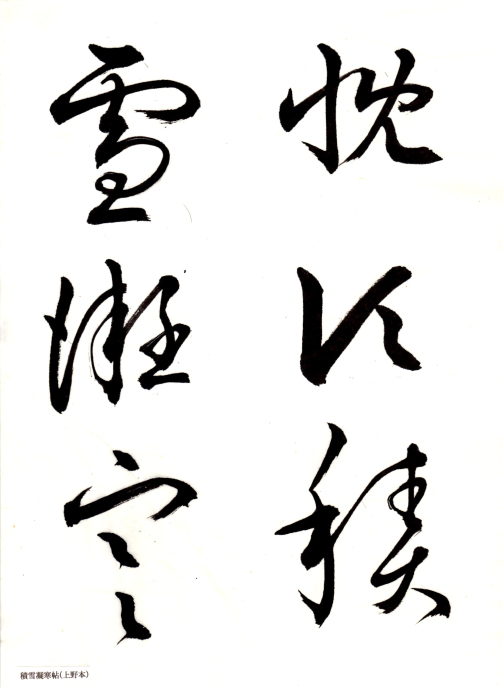 慨頃積
雪凝寒
積雪凝寒帖(上野本)